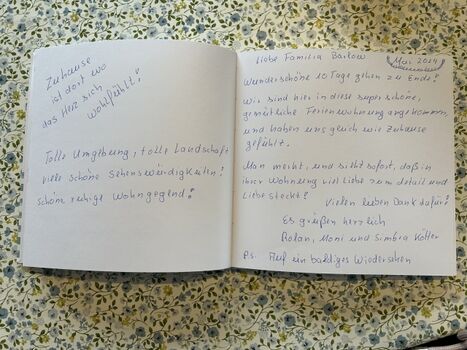 Zuhause
ist dort wo
das Herz sich
wohlfühlt!
Tolle Umgebung, tolle Landschaft
viele schöne Sehenswürdigkeiten!
schöne ruhige Wohngegend!
Liebe Familia Barlow
Mai 2024
Wunderschöne 10 Tage gehen zu Ende!
Wir sind hier in diese super schöne,
gemütliche Ferienwohnung angekommen,
und haben uns gleich wie Zuhause
gefühlt.
Man merkt, und sieht sofort, daß in
ihrer Wohnung viel Liebe zum detail und
Liebe steckt!
Vielen lieben Dank dafür!
Es grüßen herzlich
Rolan, Moni und Simbia Kötter
P.s. Auf ein baldiges Wiedersehen